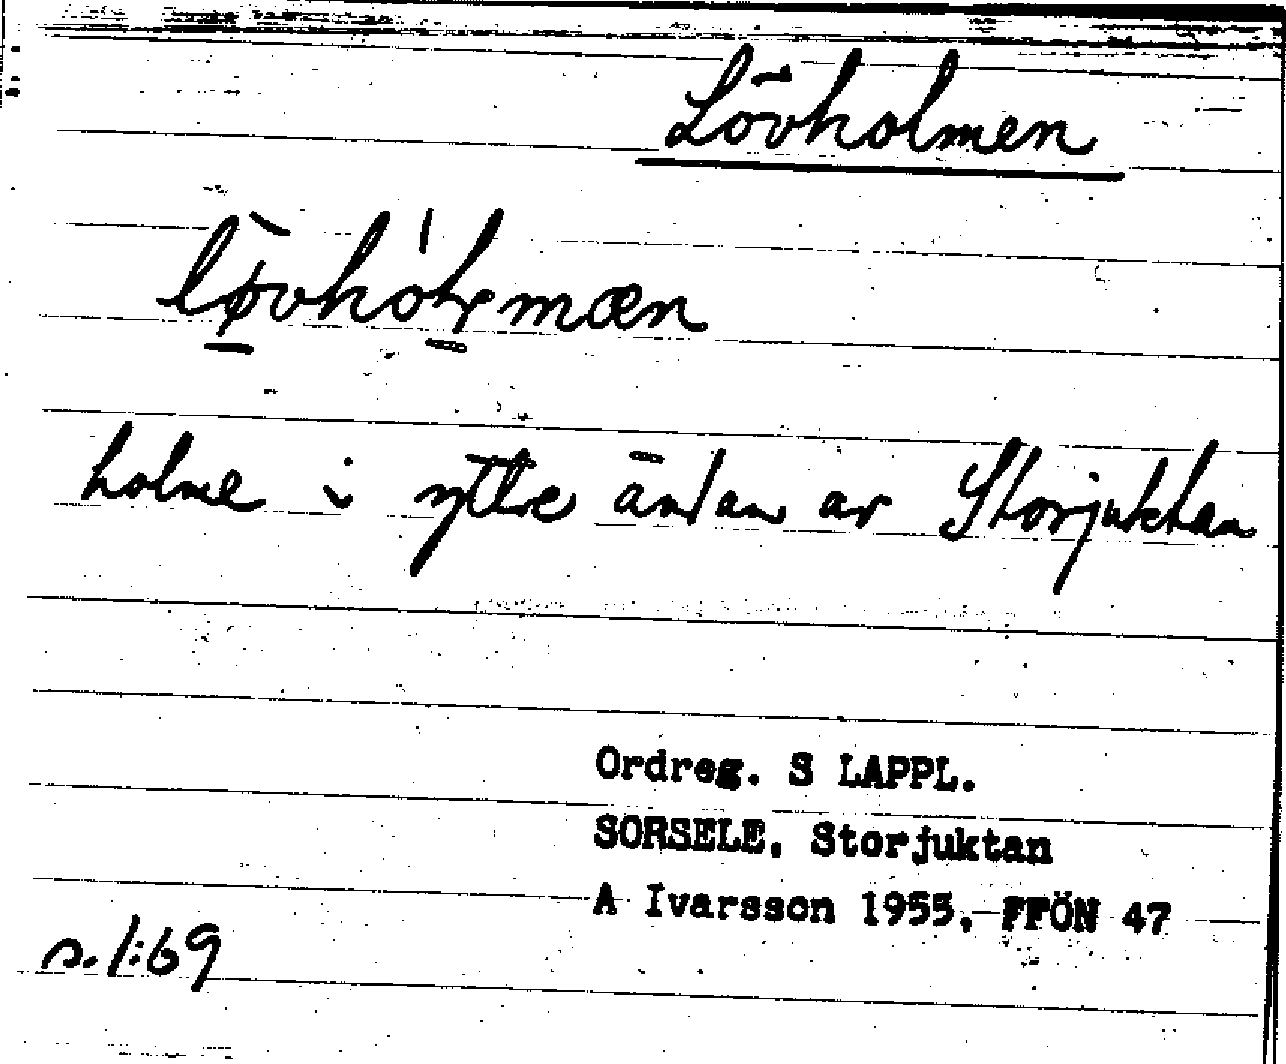 Lövholmen
lø̀vhóḷmæn
holme i yttre ändan av Storjuktan
Ordreg. S LAPPL.
SORSELE. Storjuktan
A Ivarsson 1955. FFÖN 47
s. 1:69